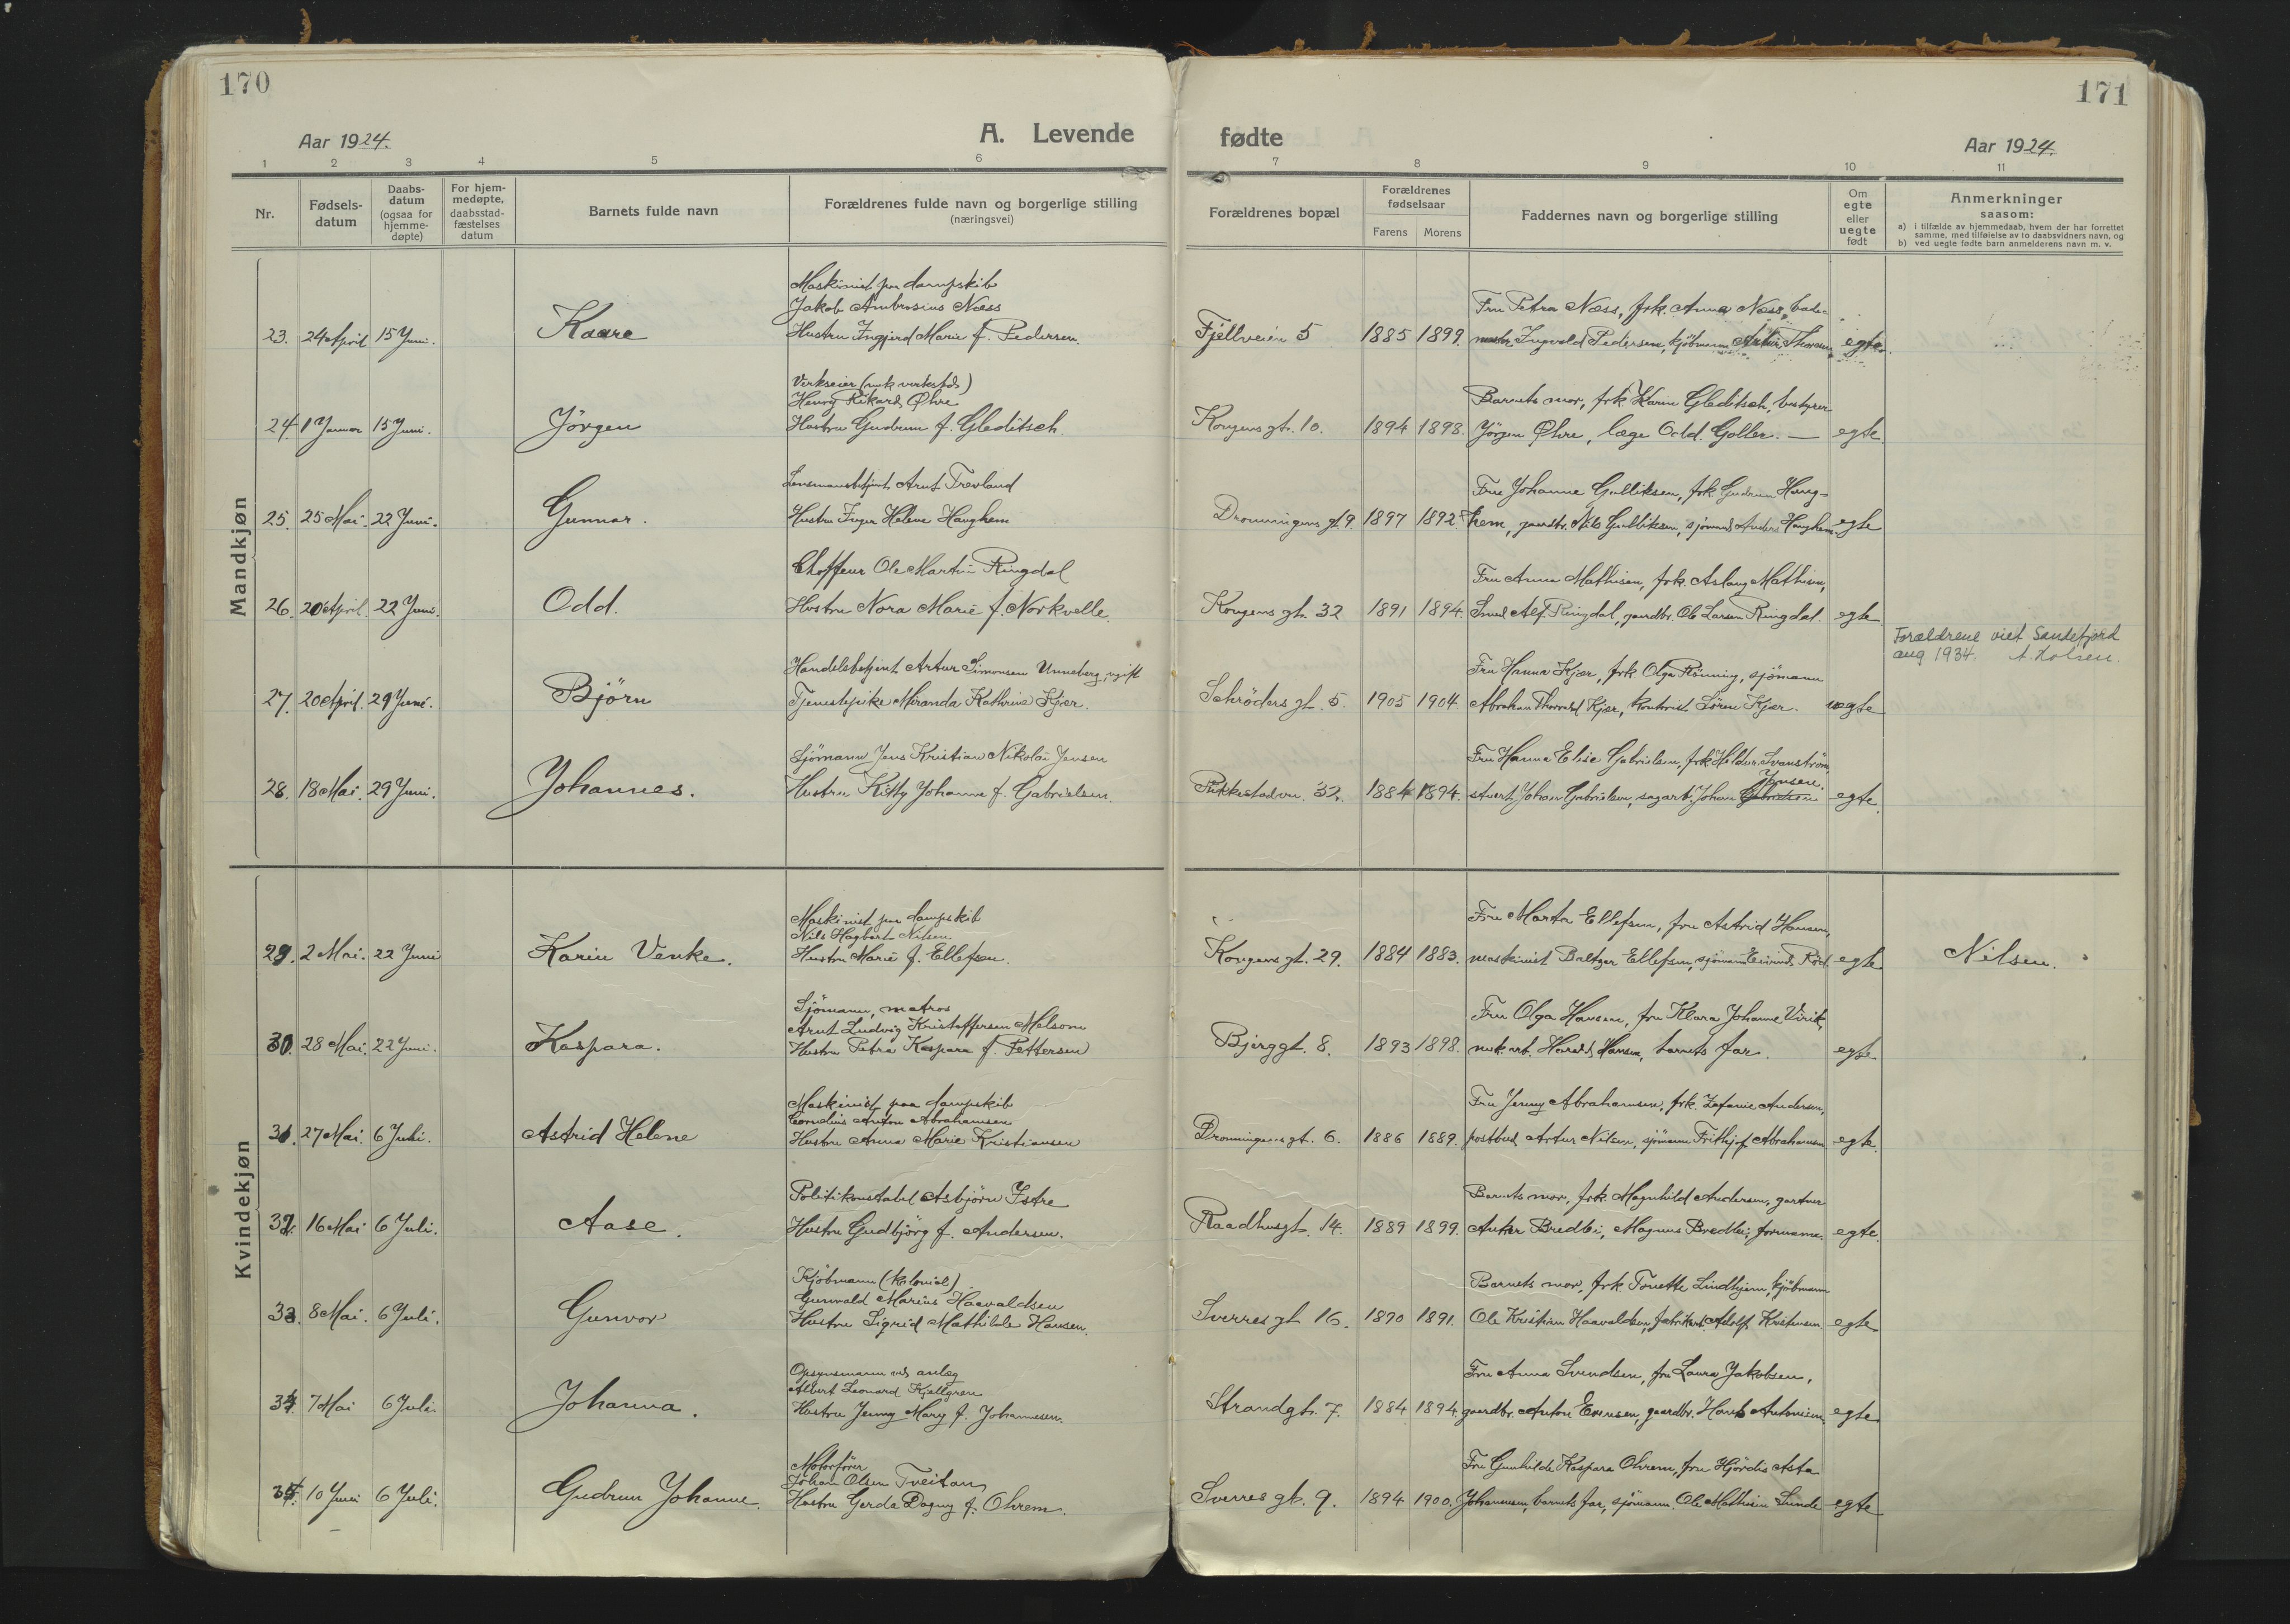 170
Aar 1924.
A. Levende
1 2 3 4 5 6
Nr.
Fødsels-
datum
Daabs-
datum
(ogsaa for
hjemme-
døpte)
For hjem-
medøpte,
daabsstad-
fæstelses
datum
Barnets fulde navn
Forældrenes fulde navn og borgerlige stilling
(næringsvei)
Mandkjøn
Maskinist paa dampskib
Jakob Ambrosius Næss
23. 24 April 15 Juni. Kaare Hustru Ingjerd Marie f. Pedersen.
Verkseier (mek verksted)
Henry Rikard Øhre
24. 1 Januar 15 Juni. Jörgen Hustru Gudrun f. Gleditsch.
Lensmansbetjent Arnt Trevland
25. 25 Mai. 22 Juni. Gunnar. Hustru Inger Helene Haughem
Chaffeur Ole Martin Ringdal
26. 20 April. 22 Juni. Odd. Hustru Nora Marie f. Norkvelle.
Handelsbetjent Artur Simonsen Unneberg, ugift
27. 20 April. 29 Juni. Björn Tjenestepike Miranda Kathrine Kjær.
Sjömann Jens Kristian Nikolai Jensen
28. 18 Mai. 29 Juni. Johannes. Hustru Kitty Johanne f. Gabrielsen.
Kvindekjøn
Maskinist paa dampskib
Nils Hagbart Nilsen
29. 2 Mai. 22 Juni Karin Venke. Hustru Marie f. Ellefsen.
Sjömann, matros
Arnt Ludvig Kristoffersen Melsom
30. 28 Mai. 22 Juni. Kaspara. Hustru Petra Kaspara f. Pettersen
Maskinist paa dampskib
Cornelius Anton Abrahamsen
31. 27 Mai. 6 Juli. Astrid Helene Hustru Anna Marie Kristiansen
Politikonstabel Asbjörn Istre
32. 16 Mai 6 Juli. Aase. Hustru Gudbjörg f. Andersen.
Kjöbmann (kolonial)
Gunvald Marius Haavaldsen
33. 8 Mai. 6 Juli. Gunvor Hustru Sigrid Mathilde Hansen.
Opsynsmann ved anlæg
Albert Leonard Kjellgren
34. 7 Mai 6 Juli Johanna. Hustru Jenny Mary f. Johannessen.
Motorförer
Johan Olsen Tveitan
35. 10 Juni 6 Juli. Gudrun Johanne. Hustru Gerda Dagny f. Ohrem.
171
fødte
Aar 1924.
7 8 9 10 11
Forældrenes bopæl
Forældrenes
fødselsaar
Farens Morens
Faddernes navn og borgerlige stilling
Om
egte
eller
uegte
født
Anmerkninger
saasom:
a) i tilfælde av hjemmedaab, hvem der har forrettet
samme, med tilføielse av to daabsvidners navn, og
b) ved uegte fødte barn anmelderens navn m. v.
Fru Petra Næss, frk. Anna Næss, bade-
Fjellveien 5 1885 1899. mester Ingvald Pedersen, kjöbmann Artur Thoresen, egte.
Barnets mor, frk Karin Gleditsch, bestyrer
Kongens gt. 10. 1894 1898. Jörgen Øhre, læge Odd. Goller. — egte.
Fru Johanne Gulliksen, frk Gudrun Haug-
Dronningens gt 9. 1897 1892. hem, gaardbr. Nils Gulliksen, sjömand Anders Haughem. egte
Fru Anna Mathisen, frk. Aslaug Mathisen,
Kongens gt. 32 1891 1894. Smed Alf Ringdal, gaardbr. Ole Larsen Ringdal. egte
Forældrene viet Sandefjord
aug 1934. A. Holsen.
Fru Hanna Kjær, frk Olga Rönning, sjömann
Schröders gt. 5. 1905 1904. Abraham Thorvald Kjær, kontorist Sören Kjær. uegte
Fru Hanna Elise Gabrielsen, frk Heldur Svanström,
Jensen.
Pukkestadvn. 32. 1884 1894. stuert Johan Gabrielsen, sagarb. Johan Gabrielsen egte.
Fru Marta Ellefsen, fru Astrid Hansen,
Kongens gt. 29. 1884 1883. maskinist Baltzer Ellefsen, sjömann Eivind Röd. egte Nilsen.
Fru Olga Hansen, fru Klara Johanne Virik,
Bjerggt. 8. 1893 1898. mek. arb. Harald Hansen, barnets far. egte
Fru Jenny Abrahamsen, frk. Zefanie Andersen,
Dronningens gt. 6. 1886 1889. postbud Artur Nilsen, sjömann Frithjof Abrahamsen egte.
Barnets mor, frk. Magnhild Andersen, gartner
Raadhusgt. 14. 1889 1899. Anker Bredli, Magnus Bredli, formann. egte.
Barnets mor, frk. Tonette Lindhjem, kjöbmann
Sverres gt 16. 1890 1891. Ole Kristian Haavaldsen, fabrikarb. Adolf Kristensen. egte
Fru Anna Svendsen, fru Laura Jakobsen,
Strandgt. 7. 1884 1894. gaardbr. Anton Evensen, gaardbr. Hans Antonisen. egte
Fru Gunhilde Kaspara Ohrem, fru Hjördis Asta
Sverres gt. 9. 1894 1900. Johannesen, barnets far, sjömann Ole Mathisen Sunde egte